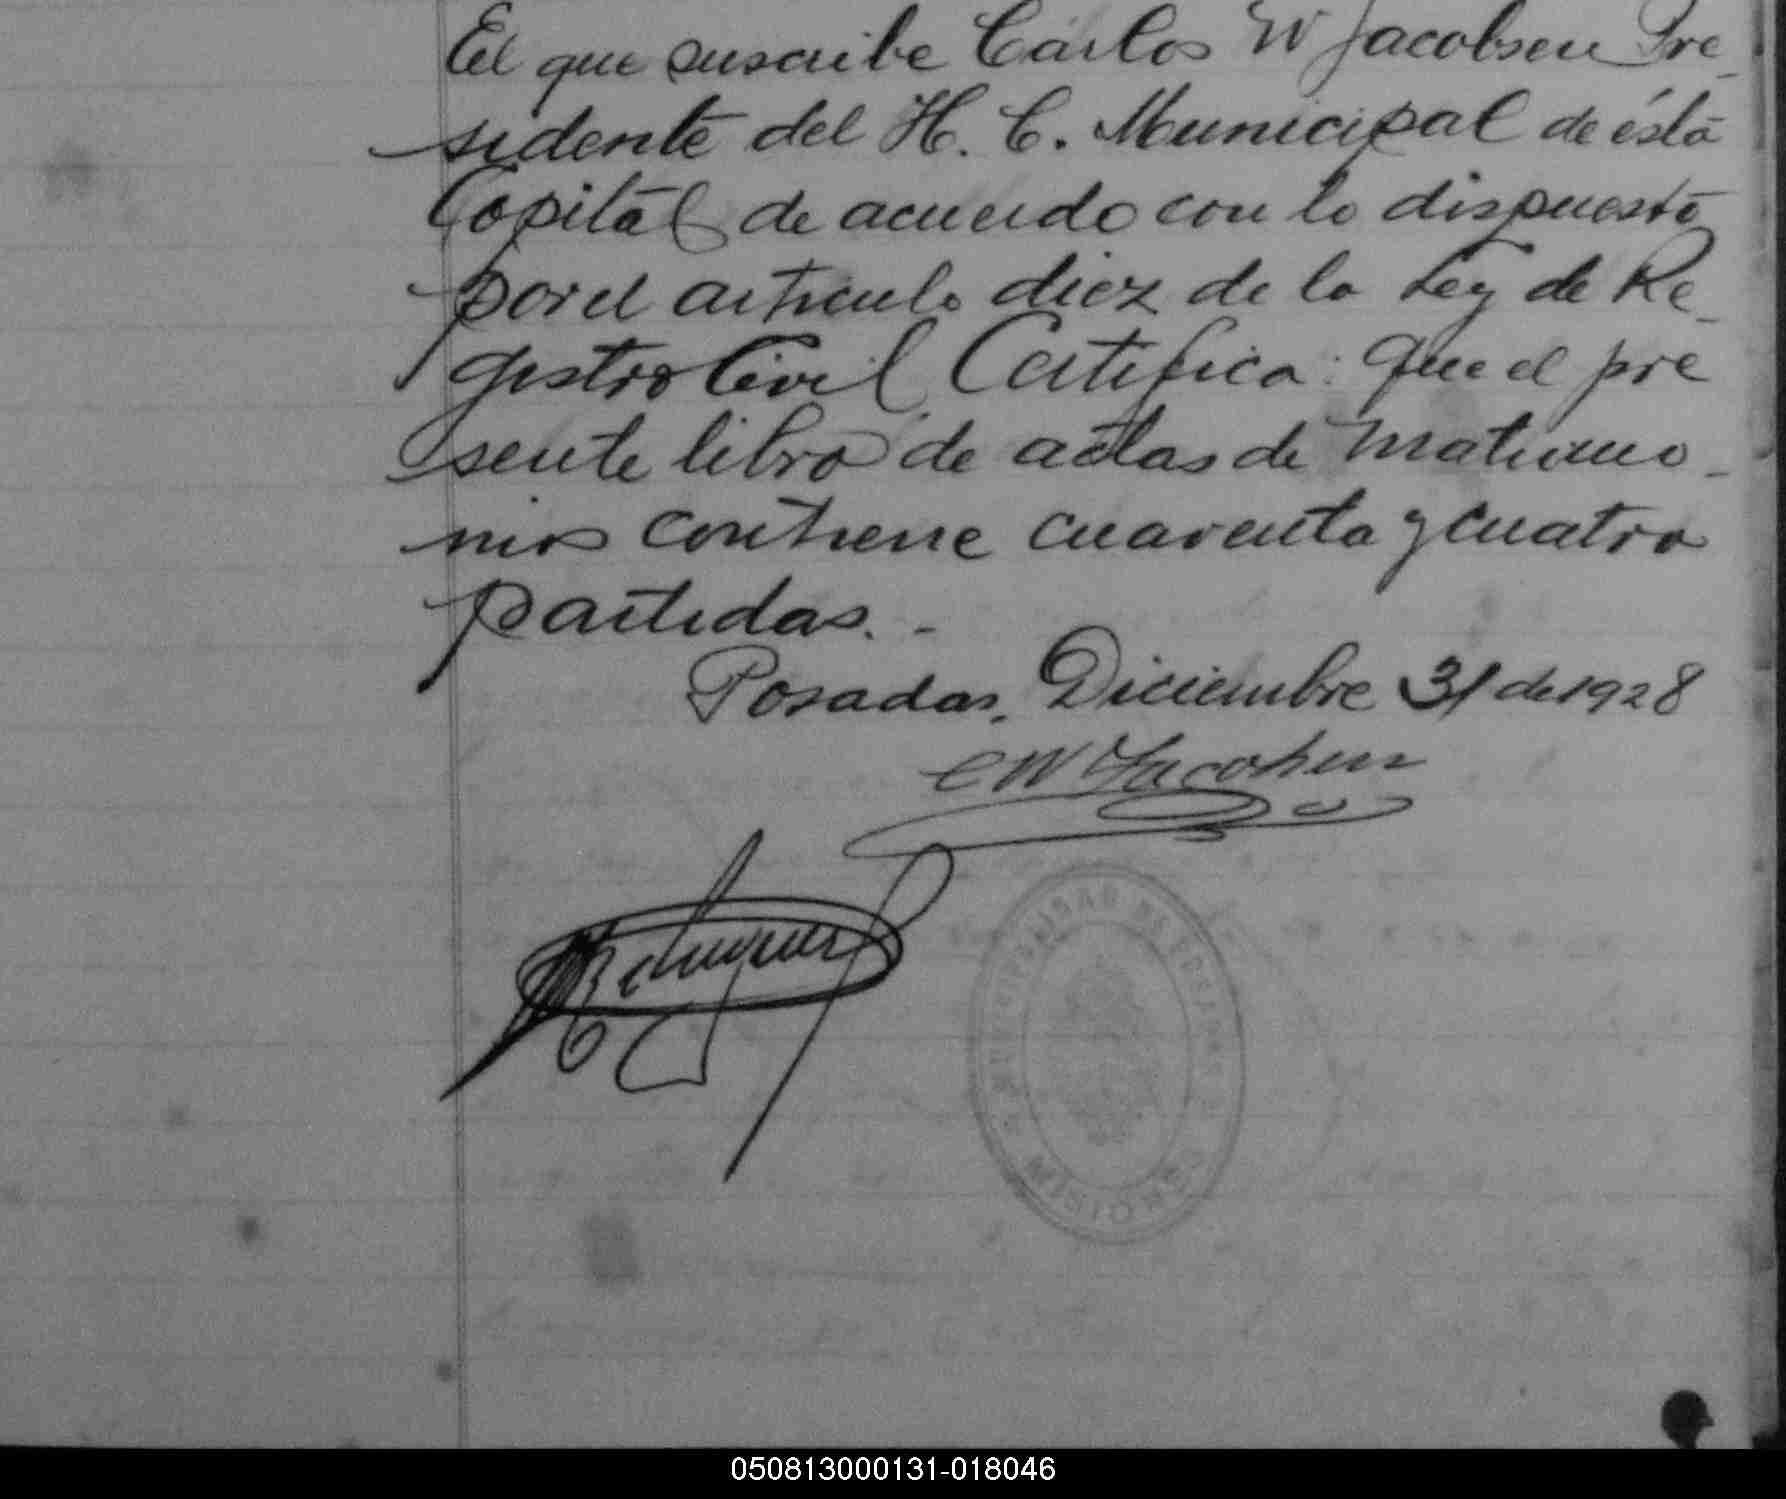 El que suscribe Carlos W Jacobsen Pre-
sidente del H. C. Municipal de ésta
Capital de acuerdo con lo dispuesto
por el articulo diez de la Ley de Re-
gistro Civil Certifica: Que el pre
sente libro de actas de matrimo-
nios contiene cuarenta y cuatro
partidas.-
Posadas, Diciembre 31 de 1928
CW Jacobsen
MUNICIPALIDAD DE POSADAS
MISIONES
050813000131-018046